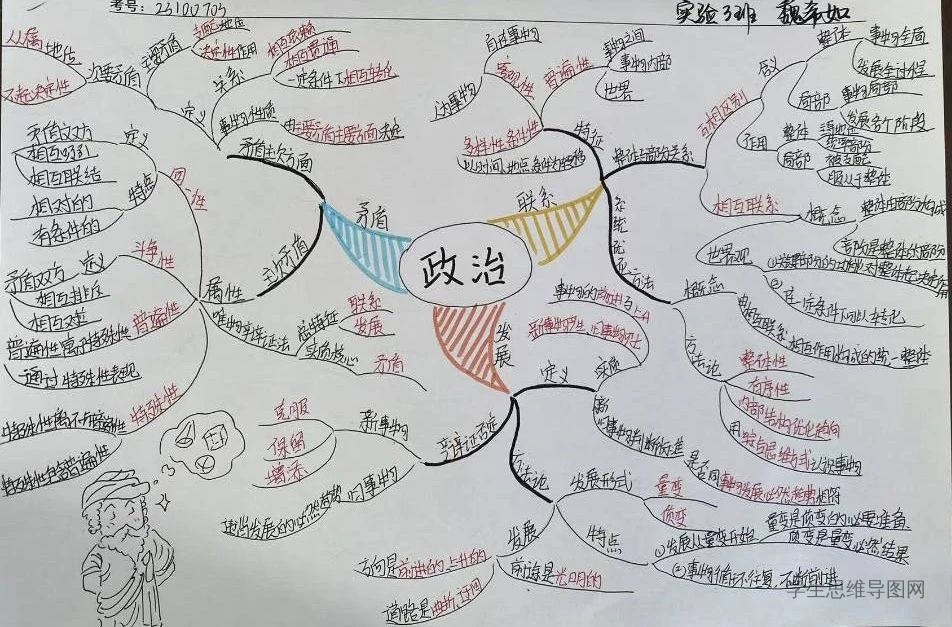 考号：23100703
实验3班 魏希如
政治
矛盾
矛盾主次方面
定义
主要矛盾
支配地位
决定性作用
次要矛盾
从属地位
不起决定性
关系
相互依赖
相互贯通
一定条件下相互转化
事物性质
由主要矛盾主要方面决定
主次矛盾
属性
同一性
定义
矛盾双方
相互吸引
相互联结
特点
相对的
有条件的
斗争性
定义
矛盾双方
相互排斥
相互对立
普遍性
普遍性寓于特殊性
通过特殊性表现
特殊性
特殊性离不开普遍性
唯物辩证法
总特征
联系
发展
实质核心
矛盾
联系
特征
客观性
自在事物
人为事物
普遍性
事物之间
事物内部
世界
多样性条件性
以时间、地点、条件为转移
整体与部分关系
互相区别
含义
整体
事物全局
发展全过程
局部
事物局部
发展各个阶段
作用
整体
统率部分
局部
被支配
服从于整体
相互联系
概念
整体由部分构成
世界观
部分是整体的部分
②在一定条件下可以转化
系统优化方法
概念
相互联系相互作用构成的统一整体
方法论
整体性
有序性
内部结构优化趋向
用综合思维方式认识事物
发展
定义
实质
事物的前进与上升
新事物产生 旧事物灭亡
新旧事物判断标准
是否同事物发展必然趋势相符
辩证否定
新事物
克服
保留
增添
旧事物
方法论
发展形式
量变
质变
特点
①发展从量变开始
量变是质变的必要准备
质变是量变必然结果
②事物循环往复、不断前进
发展
前途是光明的
方向是前进的上升的
道路是曲折、迂回
学生思维导图网